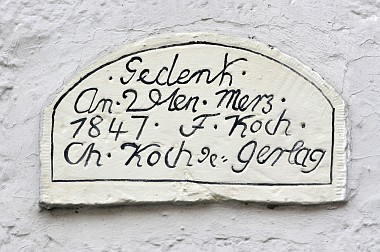 · Gedenk ·
An · 2ten · Merz ·
1847 · F. Koch ·
Ch. Koch ge- Gerlag